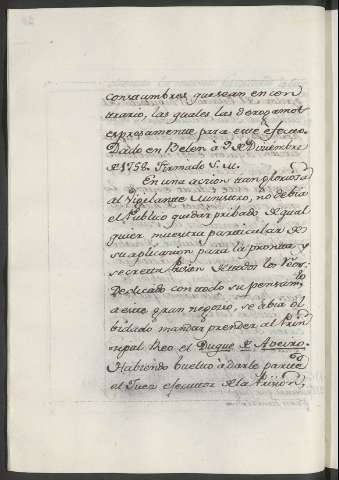 consumbres que sean en con
trario, las quales las derogamos
expresamente para este efecto.
Dado en Belen à 9 de Diziembre
de 1758. Firmado S. M.
En una acción tan gloriosa
al Vigelante Ministro, no debía
el Publico quedar pribado de qual
quier muestra particular de
su aplicacion para la pronta y
secreta Prision de todos los Reos.
Dedicado con todo su pensam.to
a este gran negocio, se abia ol
bidado mandar prender al Prin
sipal Reo el Duque de Aveiro.
Habiendo buelto à darle parte
el Juez ejecutor de la Prision,